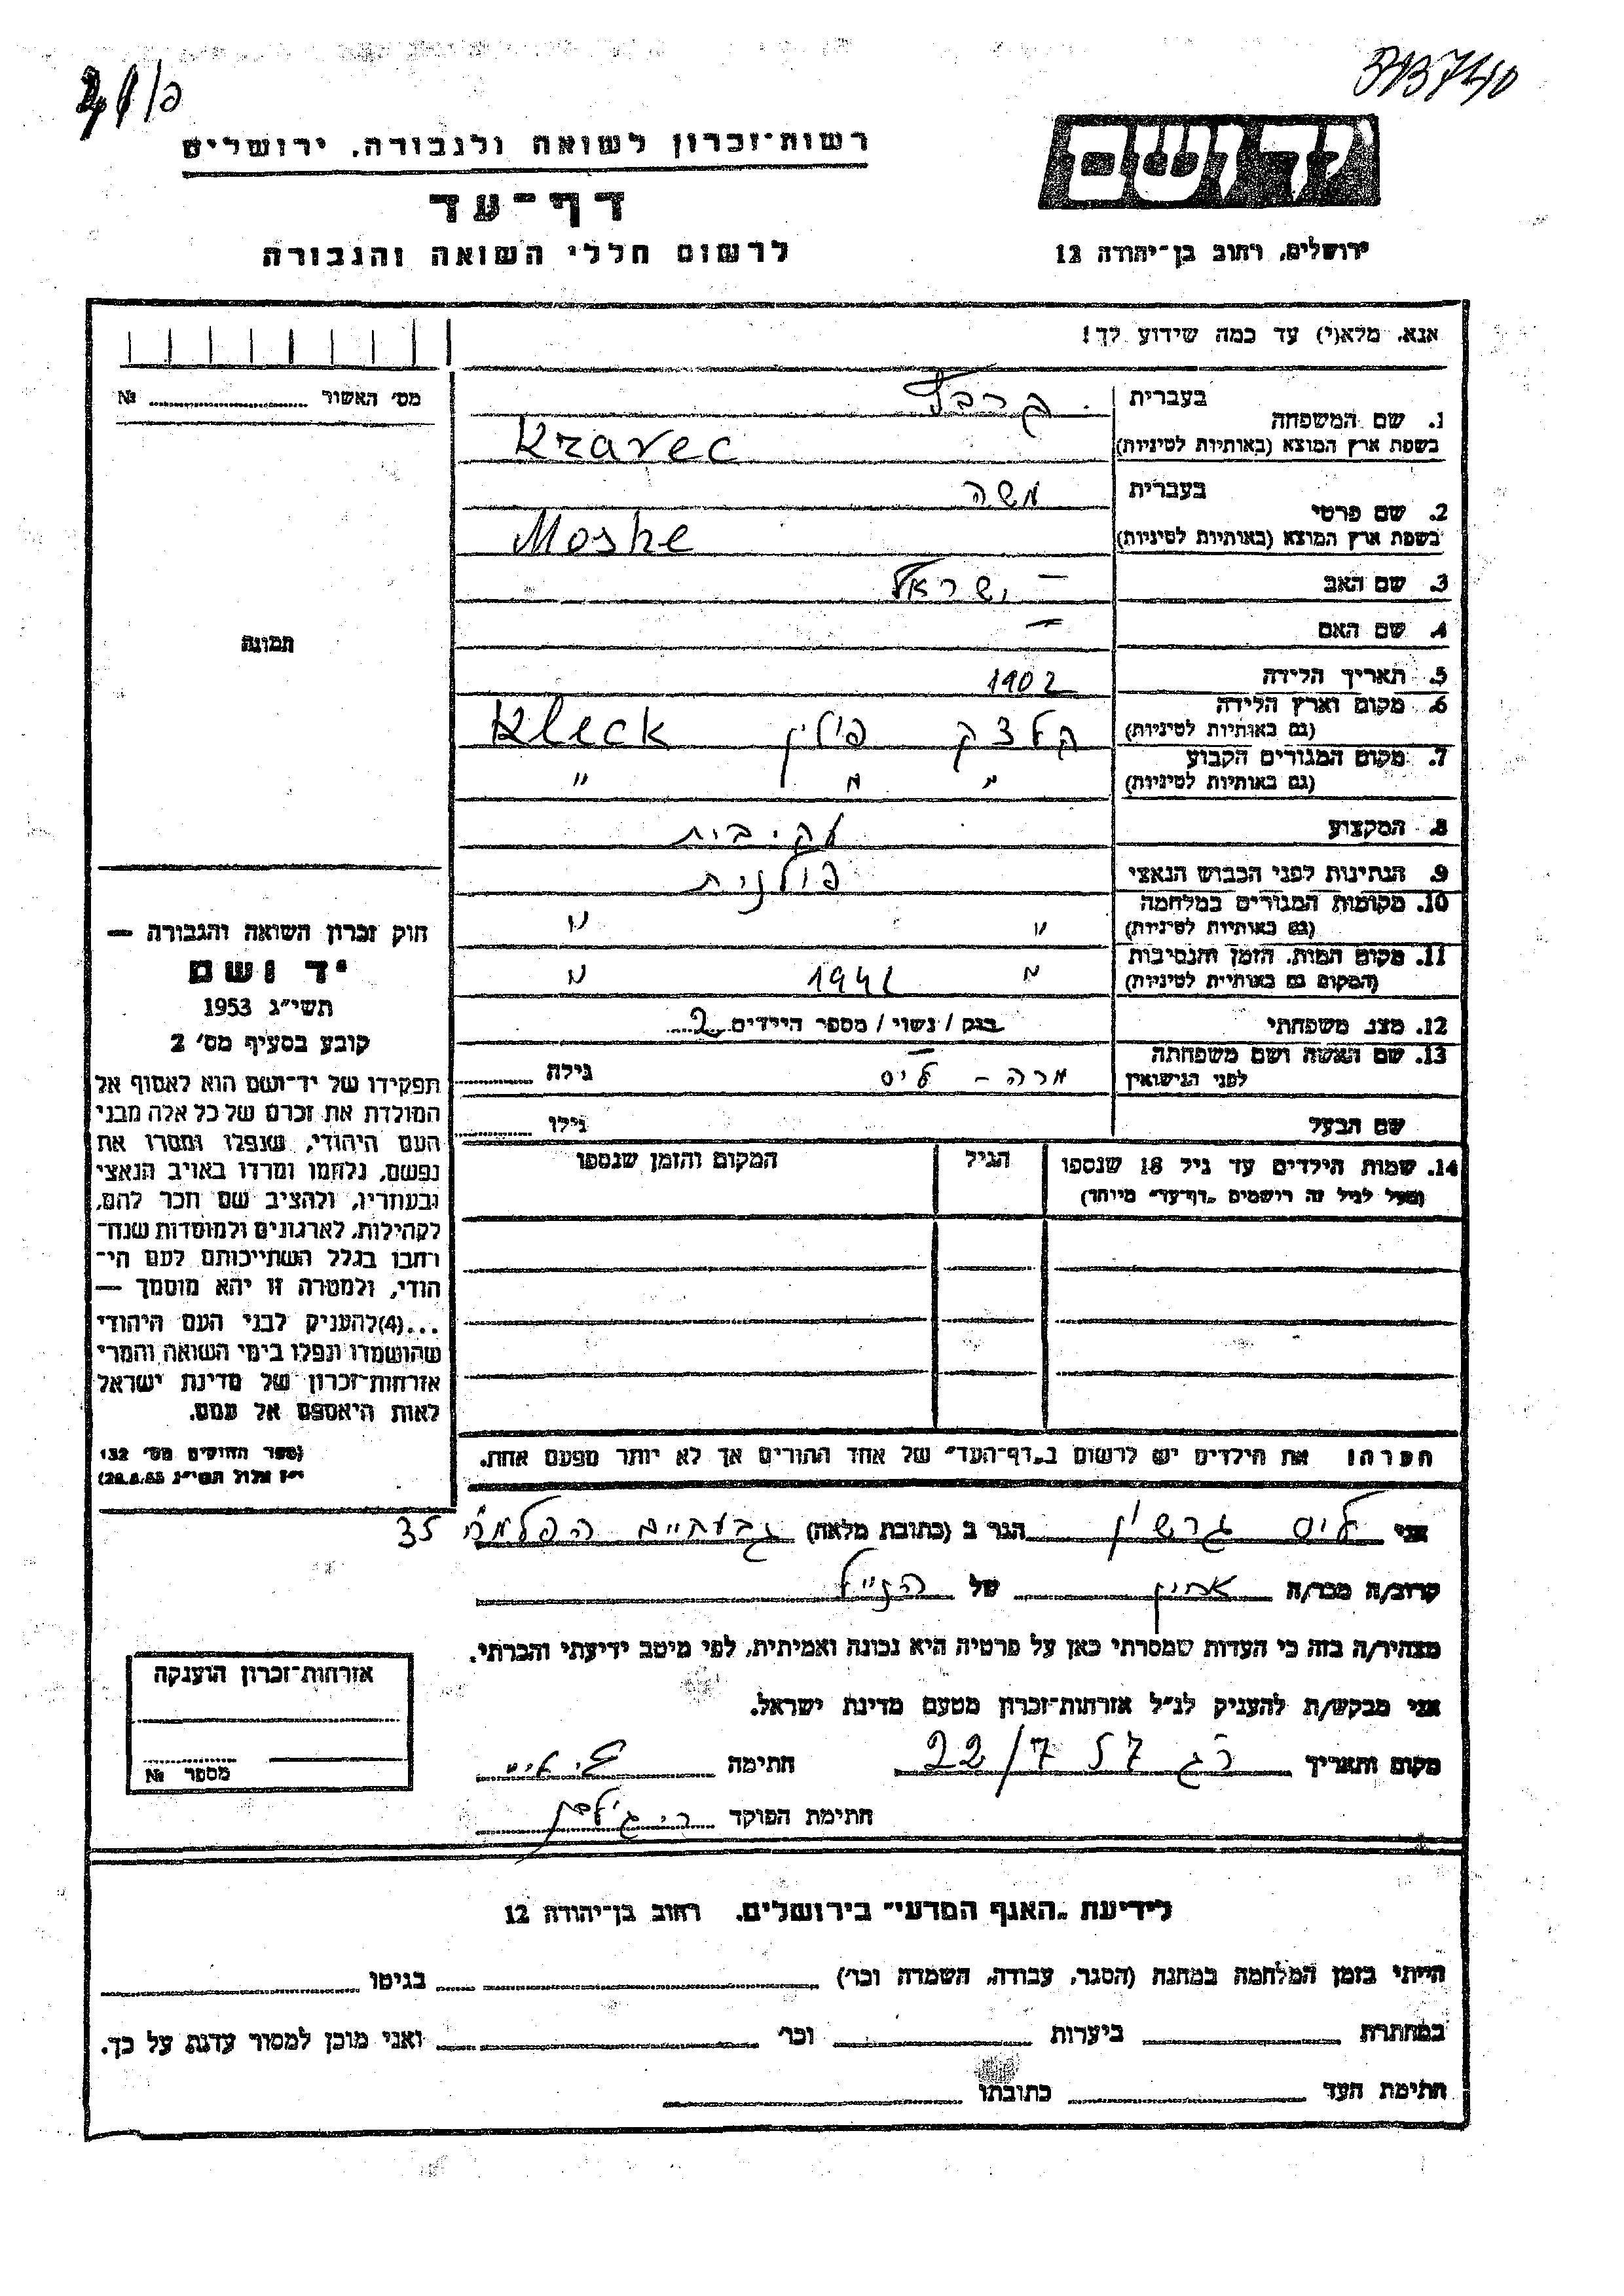 313740
רשות־זכרון לשואה ולגבורה, ירושלים
יד ושם
דף־עד
לרשום חללי השואה והגבורה
ירושלים, רחוב בן־יהודה 12
אנא, מלא(י) עד כמה שידוע לך!
מס׳ האשור № 
1. שם המשפחה בעברית קרבץ
בשפת ארץ המוצא (באותיות לטיניות) Kravec
2. שם פרטי בעברית משה
בשפת ארץ המוצא (באותיות לטיניות) Moshe
3. שם האב – ישראל
4. שם האם –
תמונה
5. תאריך הלידה 1902
6. מקום וארץ הלידה (גם באותיות לטיניות) קלצק פולין Kleck
7. מקום המגורים הקבוע (גם באותיות לטיניות) " " "
8. המקצוע
9. הנתינות לפני הכבוש הנאצי פולנית
10. מקומות המגורים במלחמה (גם באותיות לטיניות) " "
11. מקום המות, הזמן והנסיבות (המקום גם באותיות לטיניות) " 1941 "
12. מצב משפחתי רווק / נשוי / מספר הילדים 2
13. שם האשה ושם משפחתה לפני הנישואין שרה – ליס גילה
שם הבעל גילו
14. שמות הילדים עד גיל 18 שנספו הגיל המקום והזמן שנספו
(מעל לגיל זה רושמים „דף־עד" מיוחד)
חוק זכרון השואה והגבורה —
יד ושם
תשי"ג 1953
קובע בסעיף מס׳ 2
תפקידו של יד־ושם הוא לאסוף אל
המולדת את זכרם של כל אלה מבני
העם היהודי, שנפלו ומסרו את
נפשם, נלחמו ומרדו באויב הנאצי
ובעוזריו, ולהציב שם וזכר להם,
לקהילות, לארגונים ולמוסדות שנח־
רבו בגלל השתייכותם לעם הי־
הודי, ולמטרה זו יהא מוסמך —
...(4)להעניק לבני העם היהודי
שהושמדו ונפלו בימי השואה והמרי
אזרחות־זכרון של מדינת ישראל
לאות היאספם אל עמם.
(ספר החוקים מס׳ 132
י"ז אלול תשי"ג 28.8.53)
הערה: את הילדים יש לרשום ב„דף־העד" של אחד ההורים אך לא יותר מפעם אחת.
אני ליס גרשון הגר ב (כתובת מלאה) גבעתיים הפלמ"ח 35
קרוב/ה מכר/ה אחיין של הנ"ל
מצהיר/ה בזה כי העדות שמסרתי כאן על פרטיה היא נכונה ואמיתית, לפי מיטב ידיעתי והכרתי.
אני מבקש/ת להעניק לנ"ל אזרחות־זכרון מטעם מדינת ישראל.
מקום ותאריך רג 22/7 57 חתימה
חתימת הפוקד
אזרחות־זכרון הוענקה
מספר №
לידיעת „האגף המדעי" בירושלים, רחוב בן־יהודה 12
הייתי בזמן המלחמה במחנה (הסגר, עבודה, השמדה וכר׳) בגיטו
במחתרת ביערות וכר׳ ואני מוכן למסור עדות על כך.
חתימת העד כתובתו